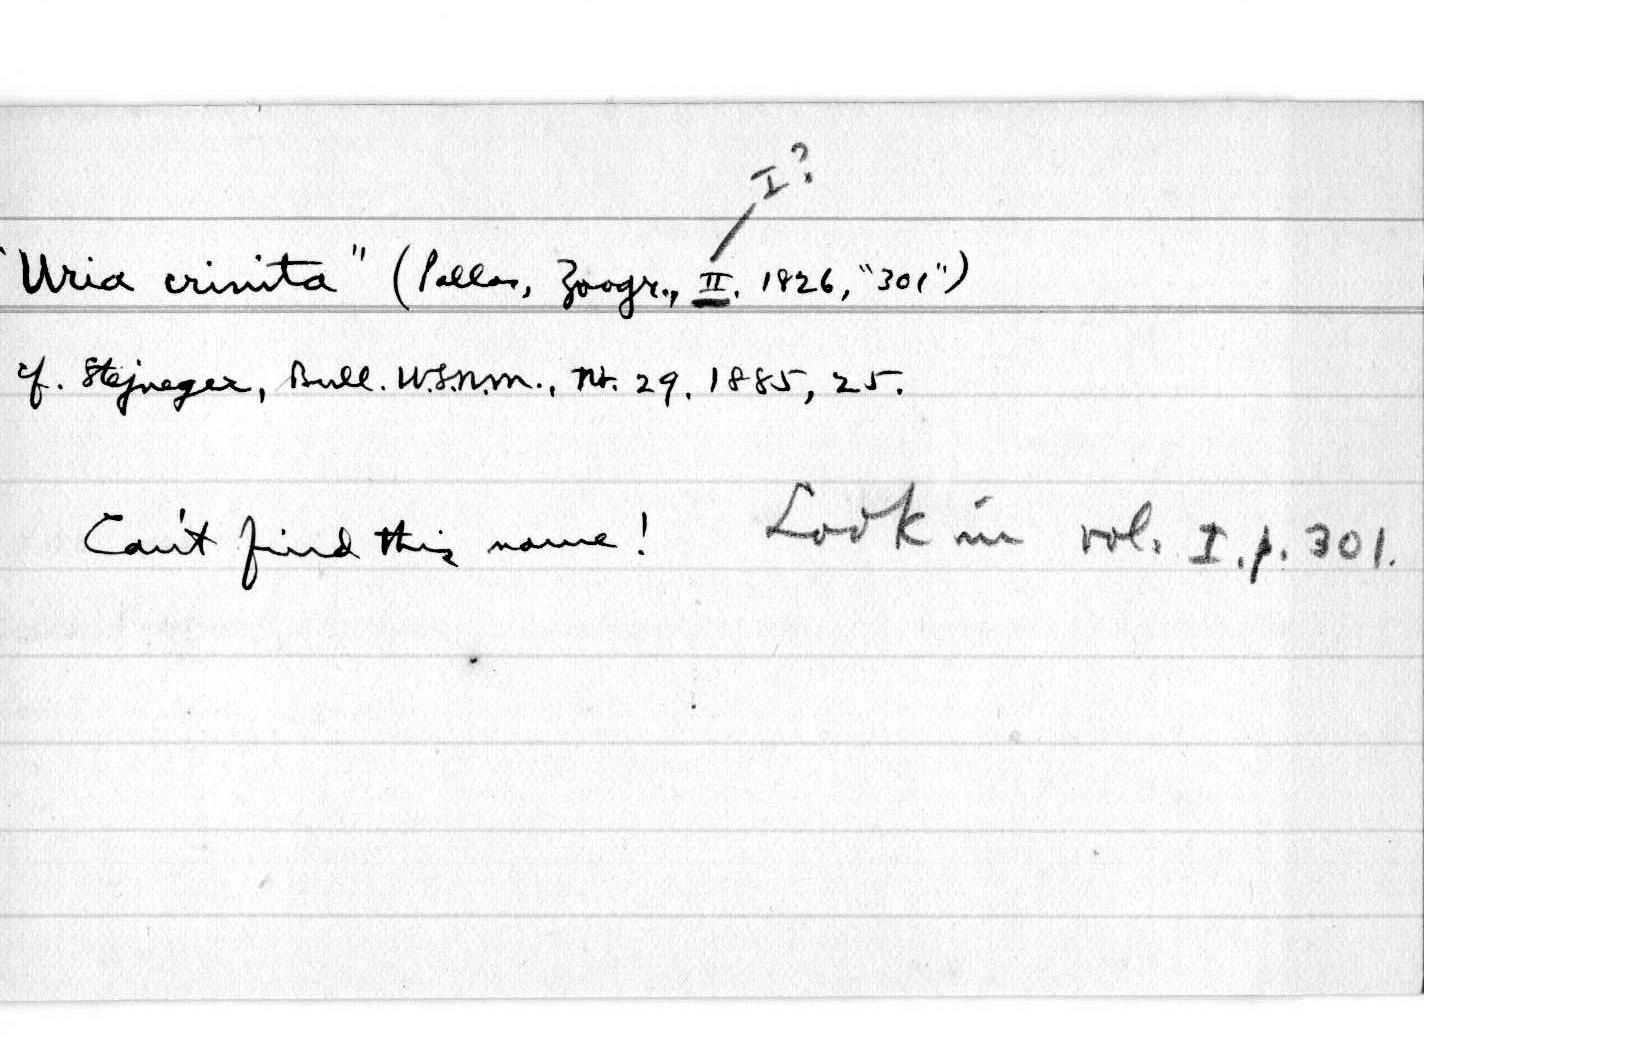 I?
"Uria crinita" (Pallas, Zoogr., II. 1826, "301")
cf. Stejneger, Bull. U.S.N.M., No. 29. 1885, 25.
Can't find this name! Look in vol. I. p. 301.